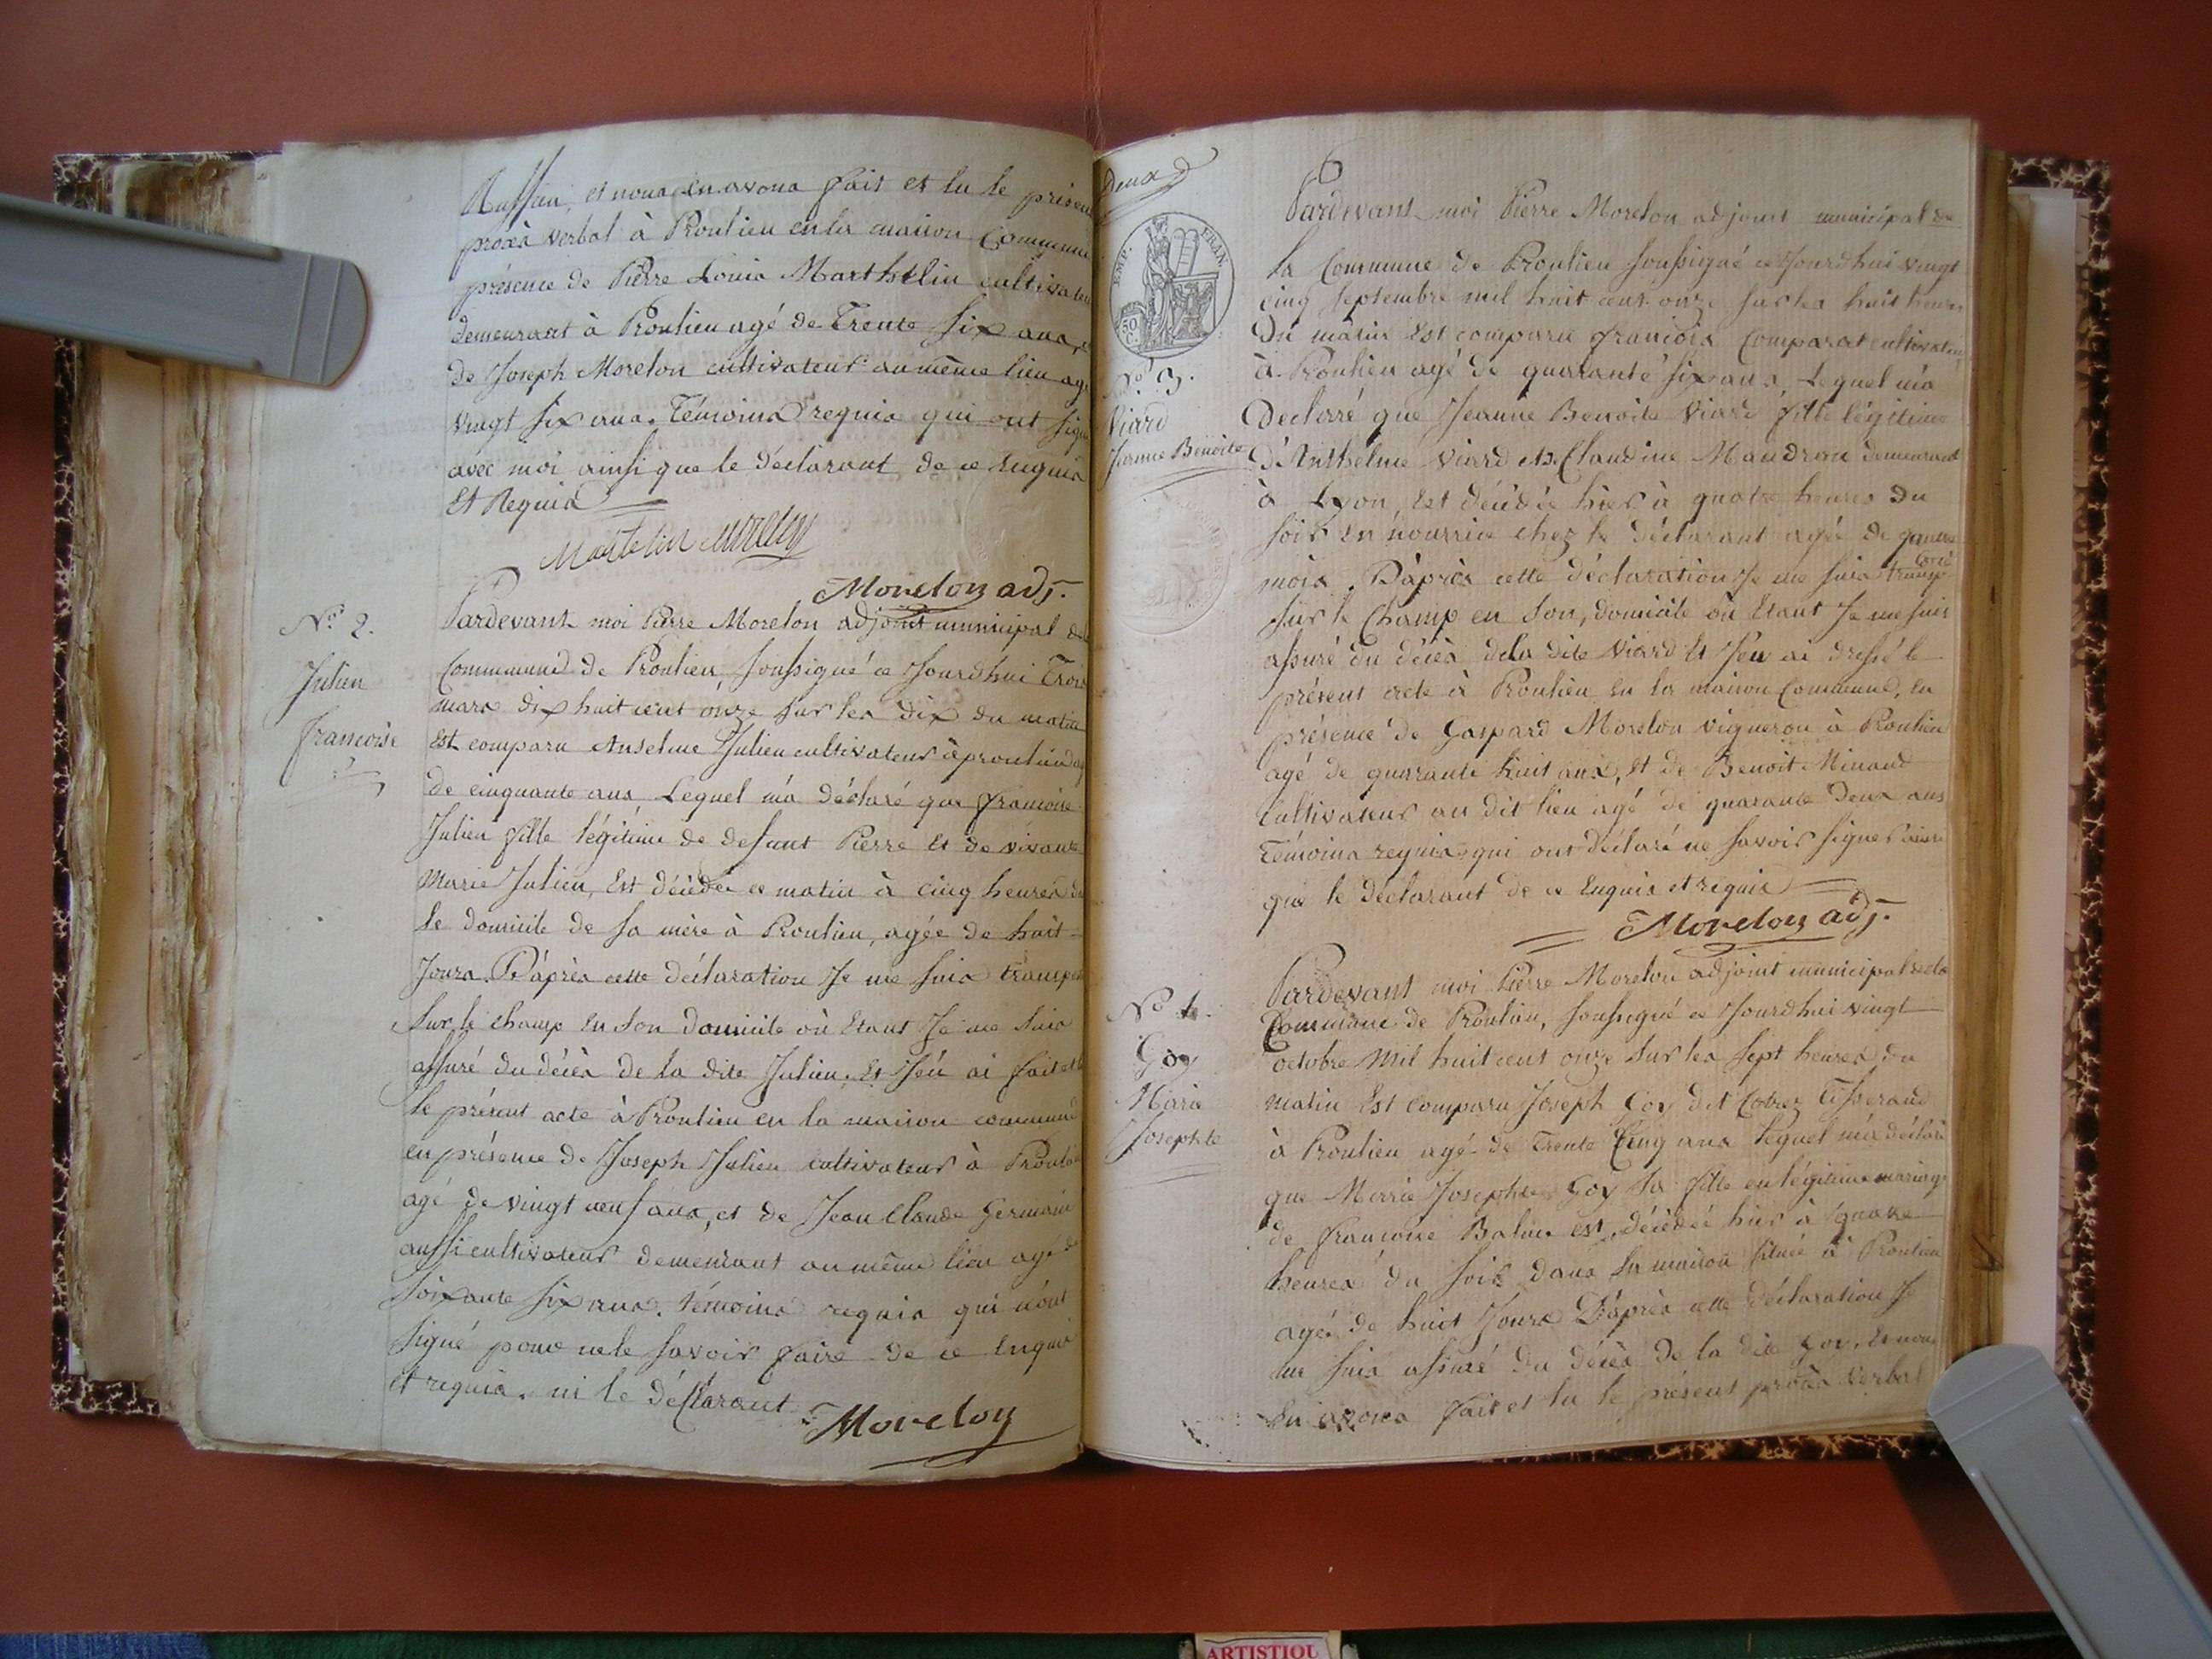 Ruffieu, et nous en avons fait et lu le présen
procès verbal à Proulieu en la maison Commune
présence de Pierre Louis Marthelin cultivateu
demeurant à Proulieu agé de Trente Six ans, et
de Joseph Morelon cultivateur au même lieu agé
Vingt Six ans. Témoins requis qui ont signé
avec moi ainsi que le déclarant de ce Enquis
Et Requis
Martelin Morelon
Morelon adj.
N.º 2.
Julien
francoise
Pardevant moi Pierre Morelon adjoint municipal de
Commune de Proulieu, Soussigné ce Jourd'hui Trois
mars dix huit cent onze Sur les dix du matin
Est comparu Anselme Julien cultivateur à proulieu agé
de cinquante ans, Lequel m'a déclaré que francoise
Julien fille légitime de defunt Pierre Et de vivante
Marie Julien, Est décédée ce matin à Cinq heures da
le domicile de Sa mère à Proulieu, agée de huit
Jours. D'après cette déclaration Je me Suis transpo
Sur le champ En Son domicile où Etant Je me Suis
assuré du décès de la dite Julien. Et J'en ai fait et lu
le présent acte à Proulieu en la maison commune
en présence de Joseph Julien cultivateur à Proulieu
agé de vingt neuf ans, et de Jean Claude Germain
aussi cultivateur demeurant au même lieu agé de
Soixante Six ans. témoins requis qui n'ont
Signé pour ne le Savoir faire de ce Enquis
et requis. ni le déclarant.
Morelon
Deux
EMP. FRAN.
50 C.
Nº 3.
Viard
Jeanne Benoite
Pardevant moi Pierre Morelon adjoint municipal de
la Commune de Proulieu Soussigné ce Jourd'hui vingt
cinq Septembre mil huit cent onze Sur les huit heures
Du matin Est comparu francois Comparat cultivateur
à Proulieu agé de quarante Six ans, Lequel m'a
Declarré que Jeanne Benoite Viard fille légitime
d'Anthelme Viard et de Claudine Maudron demeurant
à Lyon, Est décédée hier à quatre heures du
Soir En nourrice chez le déclarant agée de quatre
mois. D'après cette déclaration Je me Suis transporté
Sur le Champ en Son, domicile où Etant Je me Suis
assuré du décès de la dite Viard Et J'en ai dressé le
présent acte à Proulieu En la maison Commune, En
présence de Gaspard Morelon Vigneron à Proulieu
agé de quarante huit ans, Et de Benoit Minaud
Cultivateur au dit lieu agé de quarante Deux ans
Témoins requis qui ont déclaré ne Savoir Signer ainsi
que le Declarant de ce Enquis et requis
Morelon adj.
Nº 4.
Goy
Marie
Josephte
Pardevant moi Pierre Morelon adjoint municipal de la
Commune de Proulieu, Soussigné ce Jourd'hui vingt
octobre Mil huit cent onze Sur les Sept heures du
matin Est Comparu Joseph Goy dit Tisserand
à Proulieu agé de Trente Cinq ans lequel m'a déclaré
que Marie Josephte Goy Sa fille en légitime mariage
de francoise Balme est décédée hier à quatre
heures du Soir dans Sa maison Située à Proulieu
agée de huit Jours D'après cette déclaration Je
me Suis assuré du décès de la dite Goy, Et nous
En avons fait et lu le présent procès verbal
ARTISTIQU